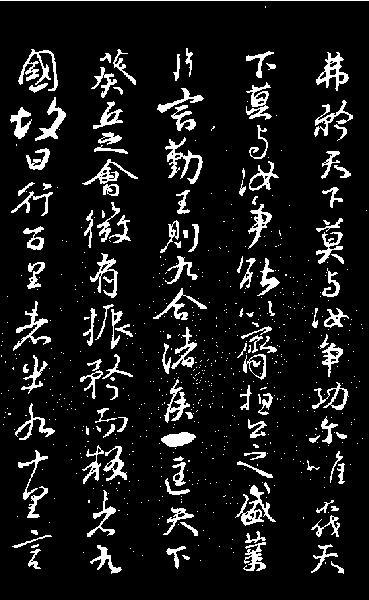 弗矜天下莫与汝争功尔唯不伐天
下莫与汝争能以齊桓公之盛業
片言勤王則九合諸侯一匡天下
葵丘之會微有振矜而叛者九
國故曰行百里者半九十里言